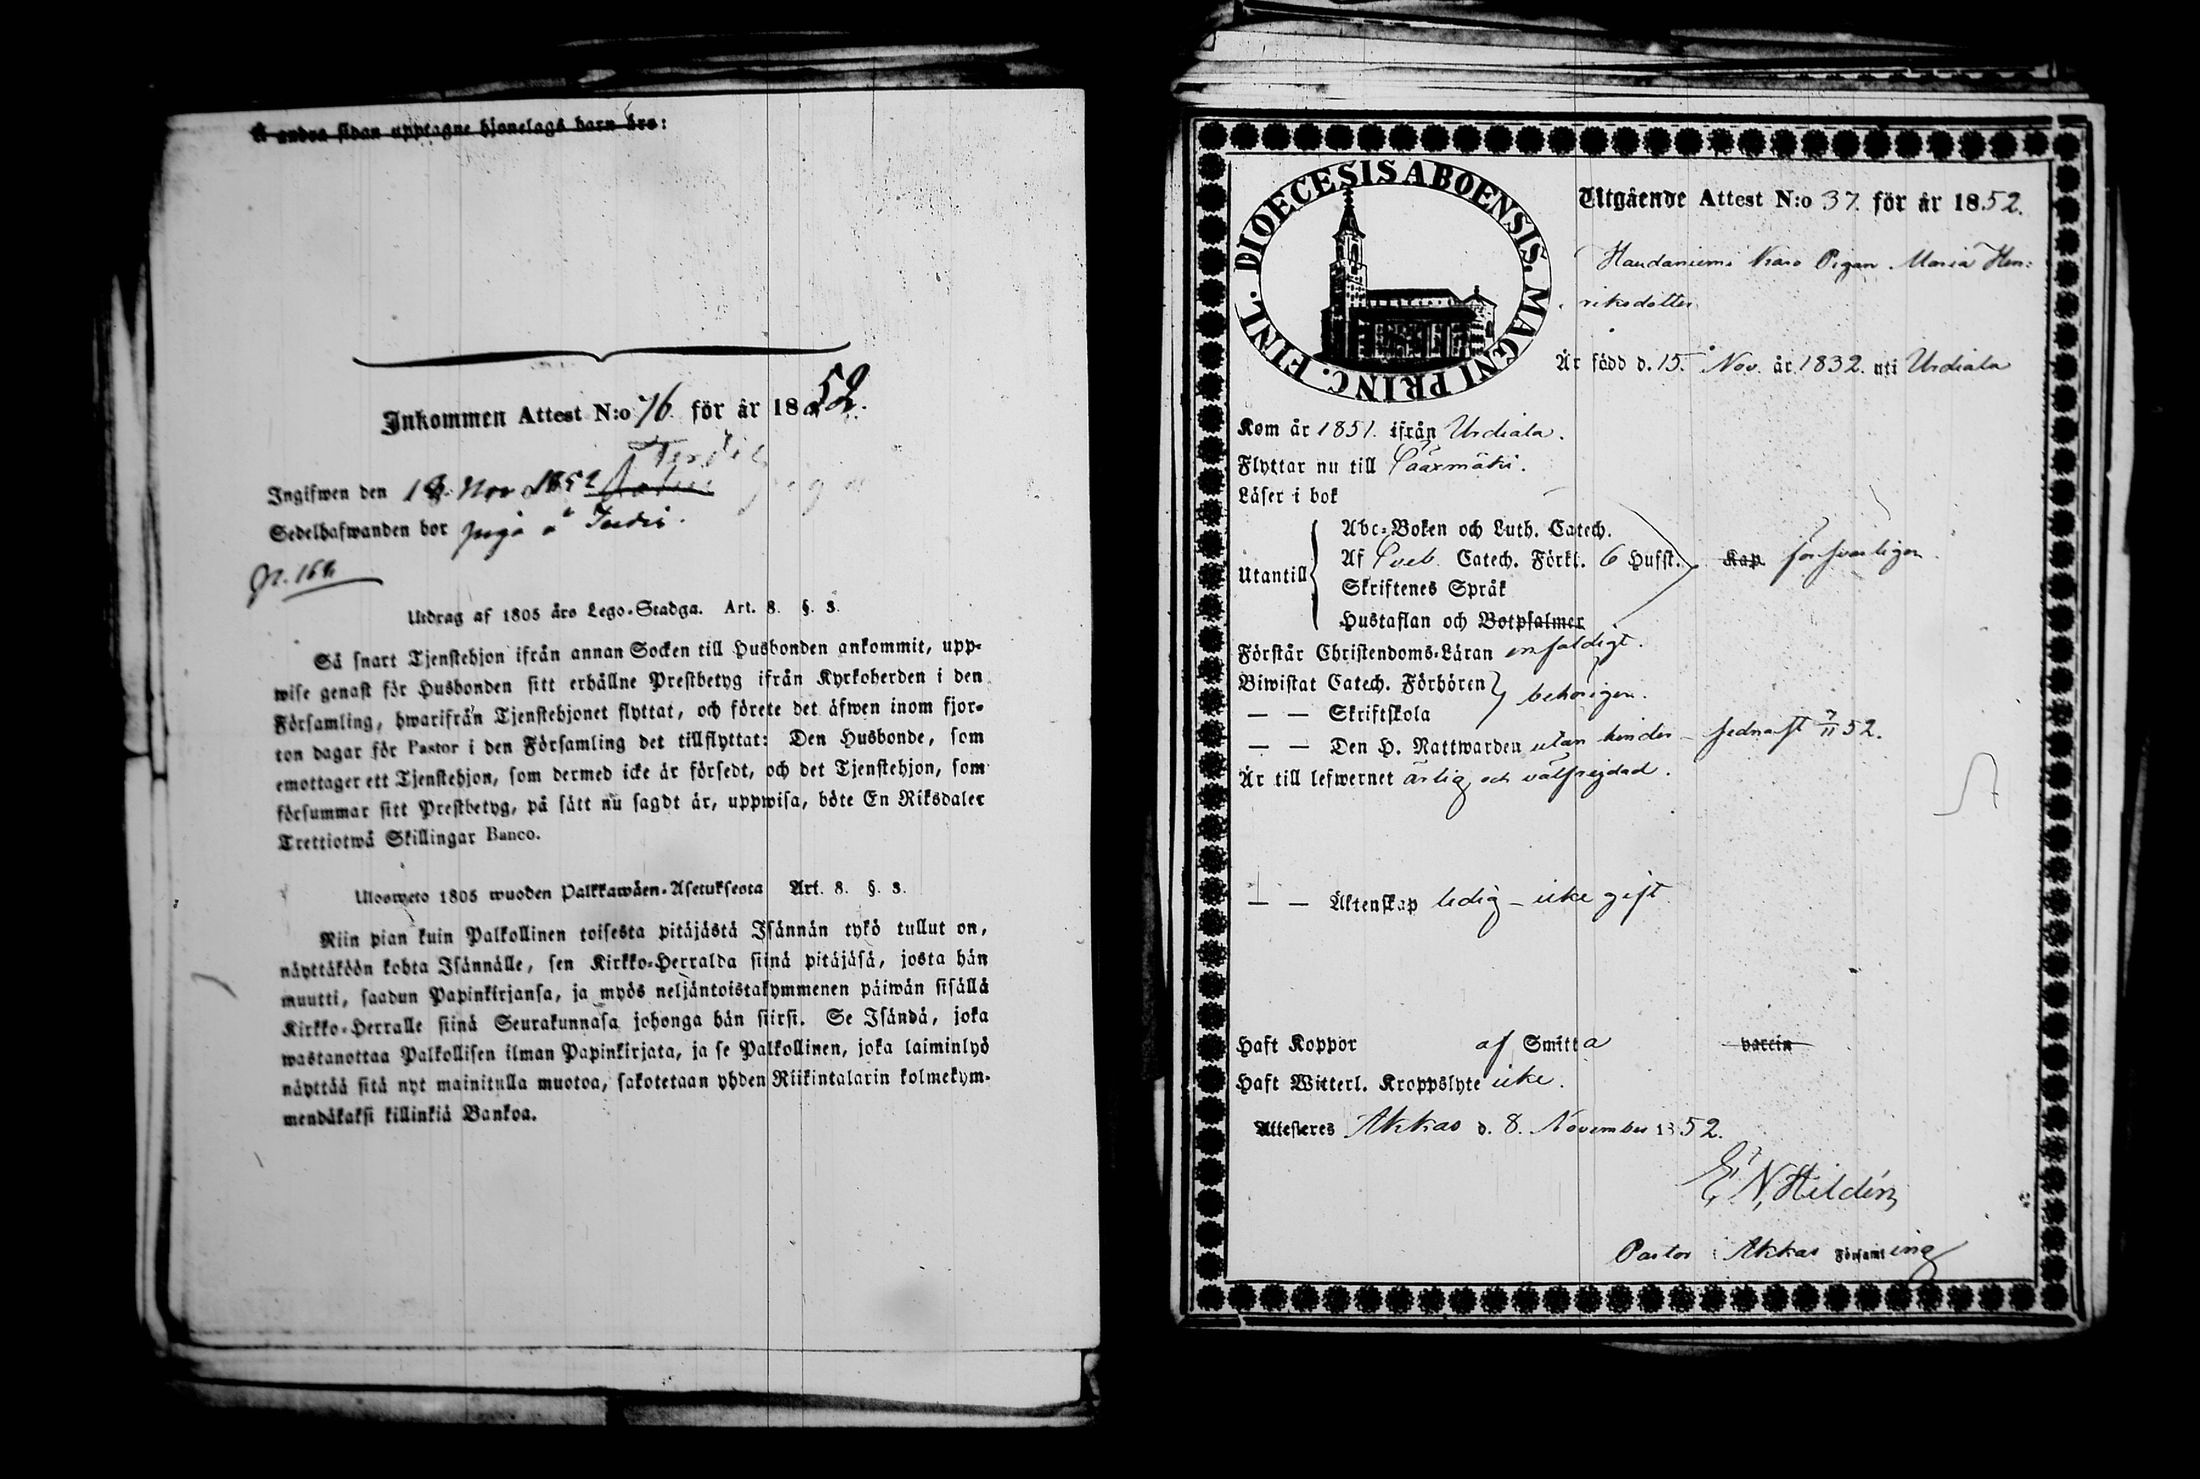 Å andra sidan upptagne hjonelags barn äro:
Inkommen Attest N:o 76. för år 1852.
Ingifwen den 18. Nov 1852
Sedelhafwanden bor piga å
Utdrag af 1805 års Lego-Stadga. Art. 8. §. 3.
Så snart Tjenstehjon ifrån annan Socken till Husbonden ankommit, upp-
wise genast för Husbonden sitt erhållne Prestbetyg ifrån Kyrkoherden i den
Församling, hwarifrån Tjenstehjonet flyttat, och förete det äfwen inom fjor-
ton dagar för Pastor i den Församling det tillflyttat: Den Husbonde, som
emottager ett Tjenstehjon, som dermed icke är försedt, och det Tjenstehjon, som
försummar sitt Prestbetyg, på sätt nu sagdt är, uppwisa, böte En Riksdaler
Trettiotwå Skillingar Banco.
Ulosweto 1805 wuoden Palkkawäen-Asetuksesta Art. 8. §. 3.
Niin pian kuin Palkollinen toisesta pitäjästä Isännän tykö tullut on,
näyttäköön kohta Isännälle, sen Kirkko-Herralda siinä pitäjäsä, josta hän
muutti, saadun Papinkirjansa, ja myös neljäntoistakymmenen päiwän sisällä
Kirkko-Herralle siinä Seurakunnasa johonga hän siirsi. Se Isändä, joka
wastanottaa Palkollisen ilman Papinkirjata, ja se Palkollinen, joka laiminlyö
näyttää sitä nyt mainitulla muotoa, sakotetaan yhden Riikintalarin kolmekym-
mendäkaksi killinkiä Bankoa.
DIOECESIS ABOENSIS. MAGNI PRINC. FINL.
Utgående Attest N:o 37. för år 1852.
Haudaniemi Pigan Maria Hen:
riksdotter
Är född d. 15. Nov. år 1832. uti Urdiala
Kom år 1851. ifrån Urdiala.
Flyttar nu till Sääxmäki.
Läser i bok
Utantill
Abc-Boken och Luth. Catech.
Af Sveb. Catech. Förkl. 6 Hufst. Kap. försvarligen.
Skriftenes Språk
Hustaflan och Botpsalmer
Förstår Christendoms-Läran enfaldigt.
Biwistat Catech. Förhören behörigen.
— — Skriftskola
— — Den H. Nattwarden utan hinder – sednast 7/11 52.
Är till lefwernet ärlig och välfrejdad.
— — Äktenskap ledig – icke gift
Haft Koppor af Smitta vaccin
Haft Witterl. Kroppslyte icke.
Attesteres Akkas d. 8. November 1852.
E. N. Hildén
Pastor i Akkas Församling